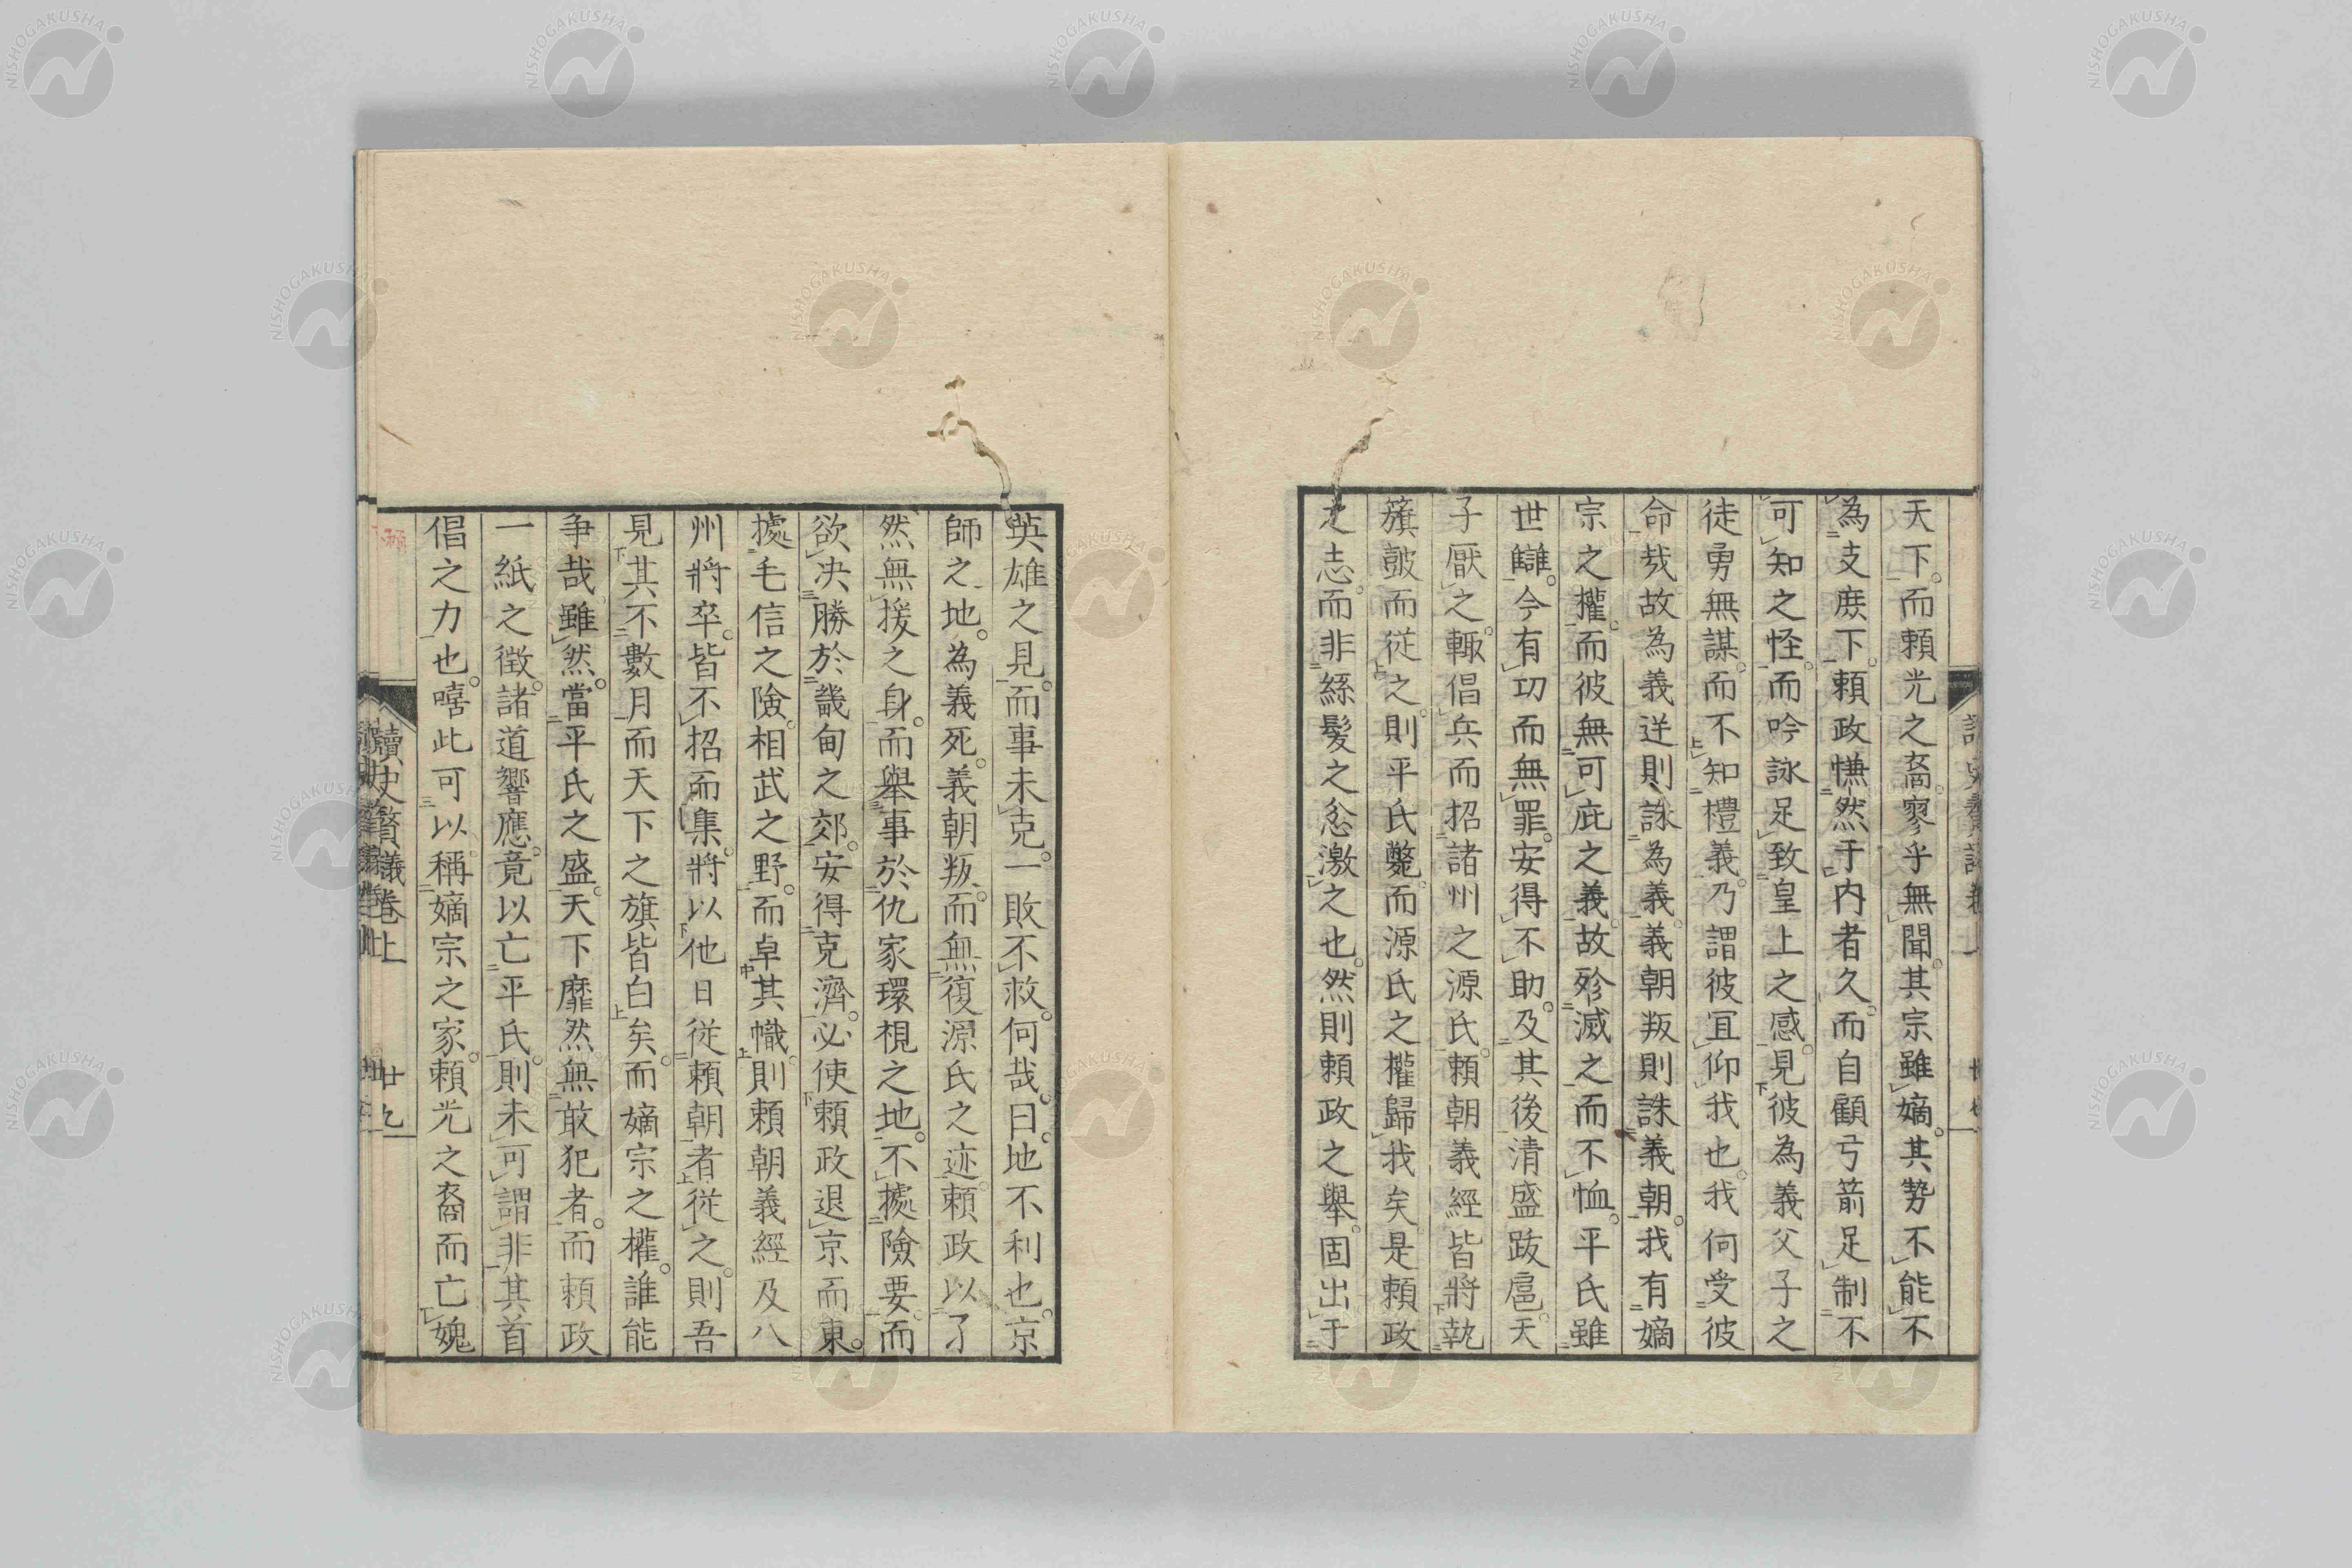 天下。而頼光之裔。寥乎無聞。其宗雖嫡。其勢不能不
為支庶下。頼政慊然于内者久。而自顧弓箭足制不
可知之怪。而吟詠足致皇上之感。見彼為義父子之
徒勇無謀。而不知禮義。乃謂彼宜仰我也。我何受彼
命哉。故為義逆則詠為義。義朝叛則誅義朝。我有嫡
宗之權。而彼無可庇之義。故殄滅之而不恤。平氏雖
世讎。今有功而無罪。安得不助。及其後清盛跋扈。天
子厭之。輙倡兵而招諸州之源氏。頼朝義經皆將執
籏鼓而従之。則平氏斃。而源氏之權歸我矣。是頼政
之志。而非絲髮之忿激之也。然則頼政之舉。固出于
英雄之見。而事未克。一敗不救。何哉。曰。地不利也。京
師之地。為義死。義朝叛。而無復源氏之迹。頼政以了
然無援之身。而舉事於仇家環視之地。不據險要。而
欲决勝於畿甸之郊。安得克濟。必使頼政退京而東。
據毛信之險。相武之野。而卓其幟。則頼朝義經及八
州將卒。皆不招而集。將以他日従頼朝者従之。則吾
見其不數月而天下之旗皆白矣。而嫡宗之權。誰能
爭哉。雖然。當平氏之盛。天下靡然無敢犯者。而頼政
一紙之徵。諸道響應。竟以亡平氏。則未可謂非其首
倡之力也。嘻此可以稱嫡宗之家。頼光之裔而亡媿
讀史贅議卷上
廿九